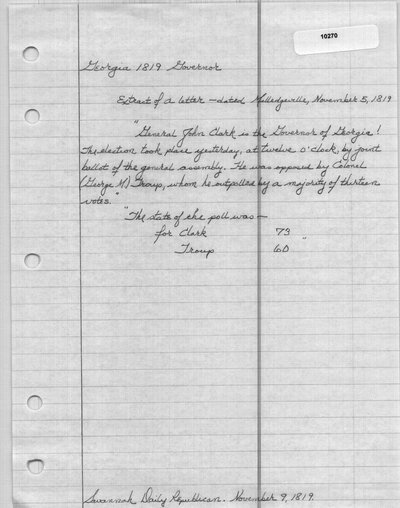 10270
Georgia 1819 Governor
Extract of a letter - dated Milledgeville, November 5, 1819
"General John Clark is the Governor of Georgia!
The election took place yesterday, at twelve o'clock, by joint
ballot of the general assembly. He was opposed by Colonel
(George M.) Troup, whom he outpolled by a majority of thirteen
votes."
"The state of the poll was -
for Clark 73
Troup 60 "
Savannah Daily Republican. November 9, 1819.